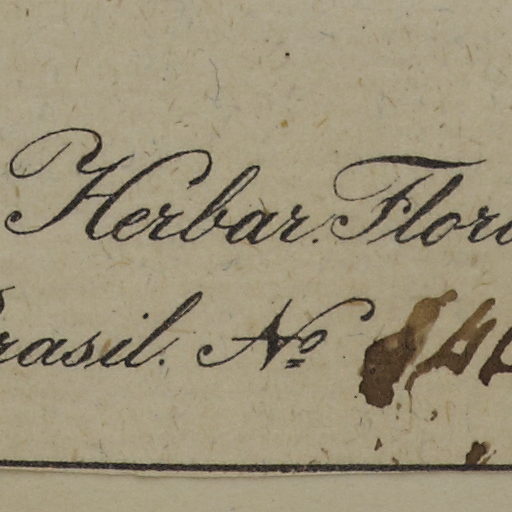 Herbar. Flor
rasil. Nº